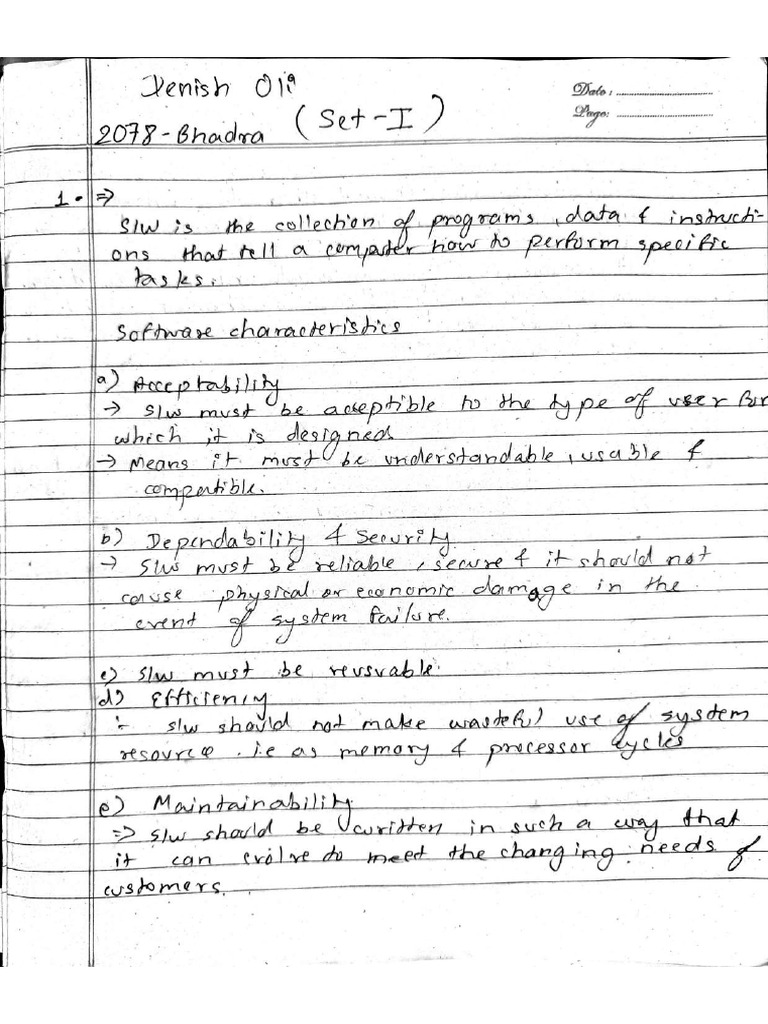 Jenish Oli
Date :
2078 - Bhadra ( Set - I )
Page:
1. ⇒
S/W is the collection of programs, data & instructi-
ons that tell a computer how to perform specific
tasks.
Software characteristics
a) Acceptability
→ S/W must be acceptible to the type of user for
which it is designed
→ Means it must be understandable, usable &
compatible.
b) Dependability & Security
→ S/W must be reliable, secure & it should not
cause physical or economic damage in the
event of system failure.
c) S/W must be reusvable.
d) Efficieny
:- S/W should not make wasteful use of system
resource .i.e as memory & processor cycles
e) Maintainability
⇒ S/W should be written in such a way that
it can evolve to meet the changing needs of
customers.